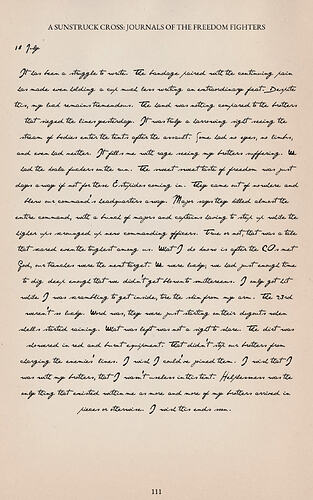 A SUNSTRUCK CROSS: JOURNALS OF THE FREEDOM FIGHTERS
18 July
It has been a struggle to write. The bandage paired with the continuing pain
has made even holding a cup much less writing an extraordinary feat. Despite
this, my lead remains tremendous. The hand was nothing compared to the brothers
that sieged the lines yesterday. It was truly a harrowing sight seeing the
stream of bodies enter the tents after the assault. Some had no eyes, no limbs,
and even had neither. It fills me with rage seeing my brothers suffering. We
had the bodies in the run. The sweet sweet taste of freedom was just
days away if not for these coming in. They came out of nowhere and
blew our command's headquarters away. Major says they killed almost the
entire command, with a bunch of majors and captains having to step up while the
higher ups arranged up new commanding officers. True or not, that was a tale
that scared even the toughest among us. What I do know is after the COs met
God, our trenches were the next target. We were lucky, we had just enough time
to dig deep enough that we didn't get blown to smithereens. I only got hit
while I was scrambling to get inside, tore the skin from my arm. The 23rd
weren't so lucky. Word was, they were just starting on their dugouts when
shells started raining. What was left was not a sight to share. The dirt was
showered in red and burnt equipment. That didn't stop our brothers from
charging the enemies' lines. I wish I could've joined them. I wish that I
was with my brothers, that I wasn't useless in this tent. Helplessness was the
only thing that existed within me as more and more of my brothers arrived in
pieces or otherwise. I wish this ends soon.
111